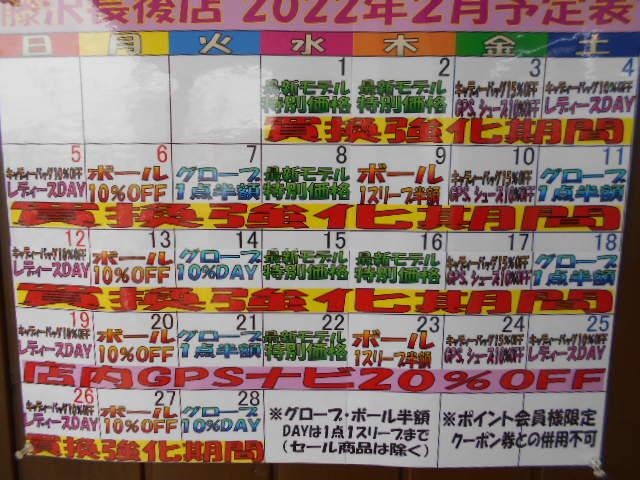 藤沢長後店 2022年2月予定表
日 月 火 水 木 金 土
1 2 3 4
最新モデル 最新モデル キャディーバッグ15%OFF キャディーバッグ10%OFF
特別価格 特別価格 GPS、シューズ10%OFF レディースDAY
買換強化期間
5 6 7 8 9 10 11
キャディーバッグ10%OFF ボール グローブ 最新モデル ボール キャディーバッグ15%OFF グローブ
レディースDAY 10%OFF 1点半額 特別価格 1スリーブ半額 GPS、シューズ10%OFF 1点半額
買換強化期間
12 13 14 15 16 17 18
キャディーバッグ10%OFF ボール グローブ 最新モデル 最新モデル キャディーバッグ15%OFF グローブ
レディースDAY 10%OFF 10%DAY 特別価格 特別価格 GPS、シューズ10%OFF 1点半額
買換強化期間
19 20 21 22 23 24 25
キャディーバッグ10%OFF ボール グローブ 最新モデル ボール キャディーバッグ15%OFF キャディーバッグ10%OFF
レディースDAY 10%OFF 1点半額 特別価格 1スリーブ半額 GPS、シューズ10%OFF レディースDAY
店内GPSナビ20%OFF
26 27 28
キャディーバッグ10%OFF ボール グローブ
レディースDAY 10%OFF 10%DAY
買換強化期間
※グローブ・ボール半額
DAYは1点1スリーブまで
(セール商品は除く)
※ポイント会員様限定
クーポン券との併用不可